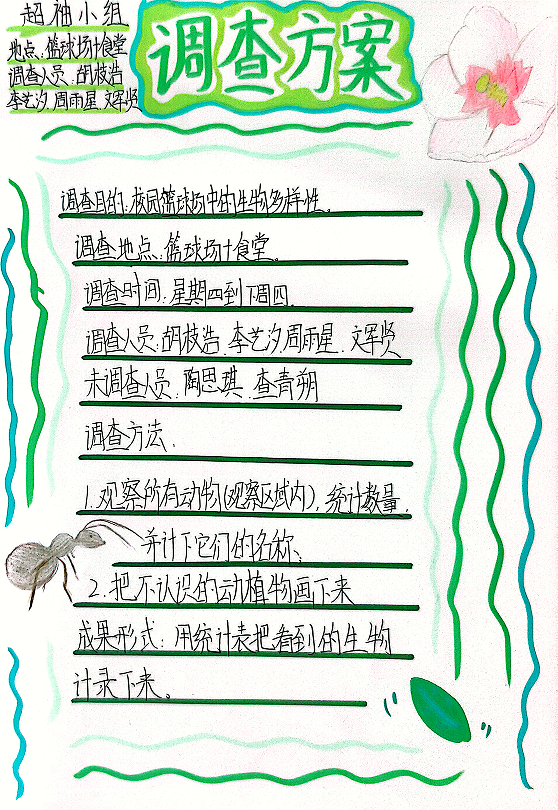 超袖小组
地点:篮球场十食堂
调查人员:胡枝浩
李艺汐.周雨星.文军贤
调查方案
调查目的:校园篮球场中的生物多样性。
调查地点:篮球场十食堂。
调查时间:星期四到下周四.
调查人员:胡枝浩.李艺汐周雨星.文军贤
未调查人员.陶思琪.查青朔
调查方法.
1.观察所有动物(观察区域内),统计数量,
并计下它们的名称;
2.把不认识的动植物画下来
成果形式:用统计表把看到的生物
计录下来。